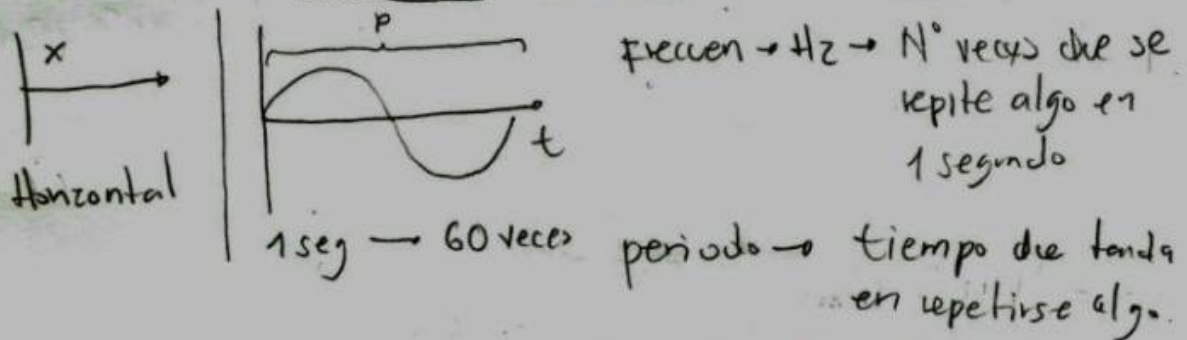 x
Horizontal
P
t
1 seg → 60 veces
Frecuen → Hz → N° veces que se
repite algo en
1 segundo
periodo → tiempo que tarda
en repetirse algo.